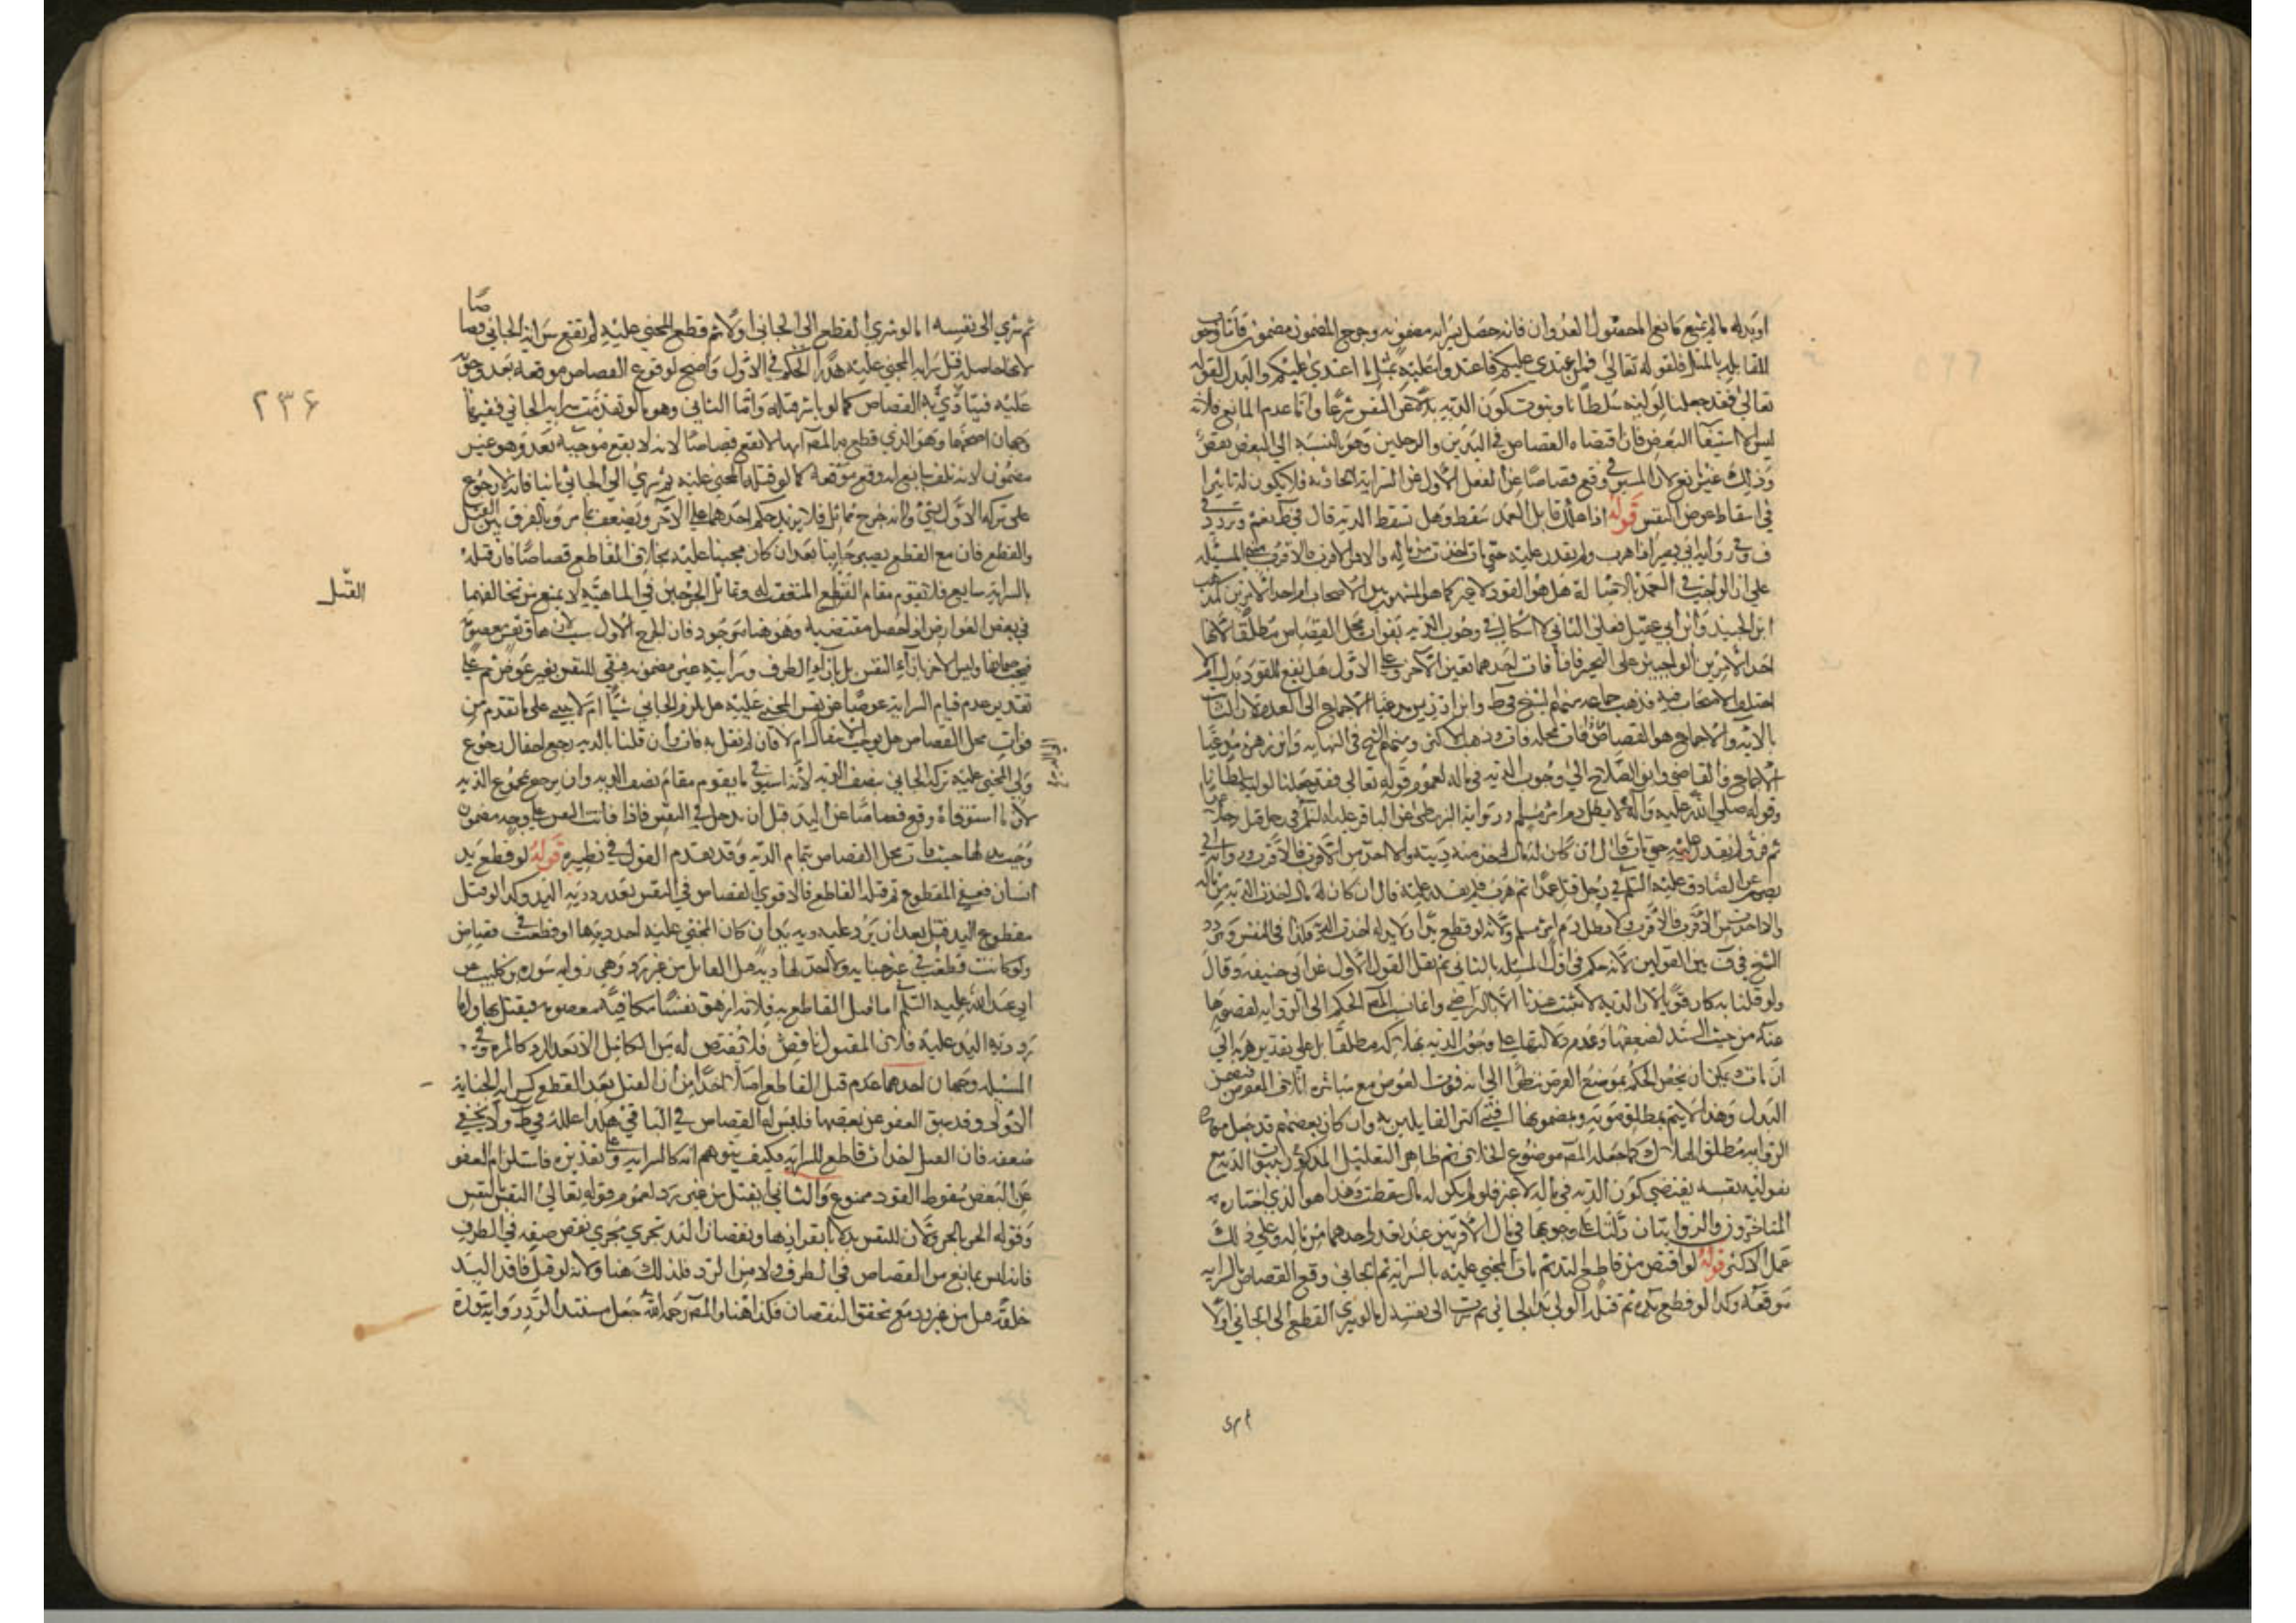 او بدله ما لم يمنع مانع المحصول العدوان فانه حصل بسراية مضمونه وجرح المضمون مضمون فأما وجوب
المقابلة بالمثل فلقوله تعالى فمن اعتدى عليكم فاعتدوا عليه بمثل ما اعتدى عليكم والبدل لقوله
تعالى فقد جعلنا لوليه سلطانا وثبوت كون الدية بدلا عن النفس شرعا واما عدم المانع فلانه
ليس الا استيفاء البعض فان اقتضاه القصاص في اليدين والرجلين وهو بالنسبة الى البعض بعض
وذلك غير مانع لان المستوفى وقع قصاصا عن الفعل الأول لا عن السراية الحادثة فلا يكون له تأثير
في اسقاط عوض النفس قوله اذا هلك قاتل العمد سقط وهل تسقط الدية قال في ط نعم وتردد في
ف وفي رواية ابي بصير اذا هرب ولم يقدر عليه حتى مات اخذت من ماله والا من الاقرب فالاقرب المسئلة
على ان الواجب في العمد بالاصالة هل هو القود لا غير كما هو المشهور بين الاصحاب ام احد الامرين كمذهب
ابن الجنيد وابن ابي عقيل فعلى الثاني لا اشكال في وجوب الدية بفوات محل القصاص مطلقا لانها
احد الامرين الواجبين على التخيير فاذا فات احدهما تعين الآخر وعلى الأول هل يقع للقود بدل ام لا
اختلف الاصحاب فيه فذهب جماعة منهم الشيخ في ط وابن ادريس مدعيا الاجماع الى العدم لان الثابت
بالآية والاجماع هو القصاص فاذا فات محله فات وذهب الاكثر ومنهم الشيخ في النهاية وابن زهرة مدعيا
الاجماع والقاضي وابن الصلاح الى وجوب الدية في ماله لعموم قوله تعالى فقد جعلنا لوليه سلطانا
وقوله صلى الله عليه وآله لا يطل دم امرئ مسلم ورواية البزنطي عن الباقر عليه السلم في رجل قتل رجلا عمدا
ثم فر ولم يقدر عليه حتى مات قال ان كان له مال اخذ منه ديته والا اخذ من الاقرب فالاقرب ورواية ابي
بصير عن الصادق عليه السلم في رجل قتل عمدا ثم هرب فلم يقدر عليه قال ان كان له مال اخذت الدية من ماله
والا اخذت من الاقرب فالاقرب ولا يطل دم امرئ مسلم ولانه لو قطع يدا ولا يد له اخذت الدية فكذا في النفس وتردد
الشيخ في ف بين القولين لانه حكم في اول المسئلة بالثاني ثم نقل القول الأول عن ابي حنيفة وقال
ولو قلنا به كان قويا لان الدية لا تثبت عندنا الا بالتراضي وانما نسب المصـ الحكم الى الرواية لقصورها
عنده من حيث السند لضعفها وعدم دلالتها على وجوب الدية بهلاكه مطلقا بل على تقدير هربه الى
ان مات ويمكن ان يخص الحكم بموضع الفرض نظرا الى انه فوت العوض مع مباشرة اتلاف المعوض فيضمن
البدل وهذا لا يتم بمطلق موته وبمضمونها افتى اكثر القايلين به وان كان بعضهم قد جعل مورد
الرواية مطلق الهلاك كما جعله المصـ موضوع الخلاف ثم ظاهر التعليل المذكور ثبوت الدية مع
تفويته نفسه يقتضي كون الدية في ماله لا غير فلو لم يكن له مال سقطت وهذا هو الذي اختاره
المتاخرون والروايتان دلتا على وجوبها في مال الاقربين عند تعذر اخذها من ماله وعلى ذلك
عمل الاكثر قوله لو اقتص من قاطع اليد ثم مات المجني عليه بالسراية ثم الجاني وقع القصاص بالسراية
موقعه وكذا لو قطع يده ثم قتله الولي يد الجاني ثم سرت الى نفسه اما لو سرى القطع الى الجاني اولا
ثم سرى الى نفسه اما لو سرى القطع الى الجاني اولا ثم قطع المجني عليه لم تقع سراية الجاني قصاصا
لانها حاصلة قبل سراية المجني عليه هدرا الحكم في الأول واضح لوقوع القصاص موقعه بعد وجوبه
عليه فيتأدى به القصاص كما لو باشر قتله واما الثاني وهو ما لو تقدمت سراية الجاني ففيها
وجهان اصحهما وهو الذي قطع به المصـ انها لا تقع قصاصا لانه لا يقع موجبه بعد وهو غير
مضمون لانه تلف سايغ له وقع موقعه كما لو قتله المجني عليه ثم سرى الى الجاني ثانيا فانه لا رجوع
على تركة الأول بشئ ولانه جرح مماثل فلا يزيد حكم احدهما على الآخر ويضعف بما مر وبالفرق بين القتل
والقطع فان مع القطع يصير جانيا بعد ان كان مجنيا عليه بخلاف القاطع قصاصا فان قتله
بالسراية سايغ فلا تقوم مقام القطع المتفقة له وتماثل الجرحين في الماهية لا يمنع من تخالفهما
في بعض العوارض اذا حصل مقتضيه وهو هنا موجود فان الجرح الاول سبب لازهاق نفس معصومة
فيجب ضمانها وليس الآخر بازاء النفس بل بازاء الطرف وسرايته غير مضمونه فتبقى للنفس بغير عوض ثم على
تقدير عدم قيام السراية عوضا عن نفس المجني عليه هل يلزم الجاني شئ ام لا يبنى على ما تقدم من
فوات محل القصاص هل يوجب الانتقال ام لا فان لم نقل به فات وان قلنا بالدية رجع احتمال رجوع
ولي المجني عليه تركة الجاني بنصف الدية لانه استوفى ما يقوم مقام نصف الدية وان يرجع بمجموع الدية
لان ما استوفاه وقع قصاصا عن اليد قبل ان يدخل في النفس فاذا فاتت النفس على وجه مضمون
وجب بدلها حيث فات محل القصاص تمام الدية وقد تقدم القول في نظيره قوله لو قطع يد
انسان فعفى المقطوع ثم قتله القاطع فالاقوى القصاص في النفس بعد رد دية اليد وكذا لو قتل
مقطوع اليد قتل بعد ان يرد عليه دية يد ان كان المجني عليه اخذ ديتها او قطعت في قصاص
ولو كانت قطعت في غير جناية ولا اخذ لها دية قتل القاتل من غير رد وهي رواية سورة بن كليب عن
ابي عبد الله عليه السلم اما قتل القاطع به فلانه ازهق نفسا مكافية معصومة فيقتل بها واما
رد دية اليد عليه فلان المقتول ناقص فلا يقتص له من الكامل الا بعد الرد كالمرءة وفي
المسئلة وجهان احدهما عدم قتل القاطع اصلا اخذا من ان القتل بعد القطع كسراية الجناية
الأولى وقد سبق العفو عن بعضها فليس له القصاص في الباقي هكذا علله في ط ولا يخفى
ضعفه فان القتل احداث قاطع للسراية فكيف يتوهم انه كالسراية وعلى تقديره فاستلزام العفو
عن البعض سقوط القود ممنوع والثاني يقتل من غير رد لعموم قوله تعالى النفس بالنفس
وقوله الحر بالحر ولان للنفس بدلا بانفرادها ونقصان اليد تجري مجرى نقص صفة في الطرف
فانه ليس بمانع من القصاص في الطرف ولا من الرد فلذلك هنا ولانه لو قتل فاقد اليد
خلقة قتل من غير رد مع تحقق النقصان فكذا هنا والمصـ رحمه الله جعل مستند الرد رواية سورة
القتل
۲۳۶